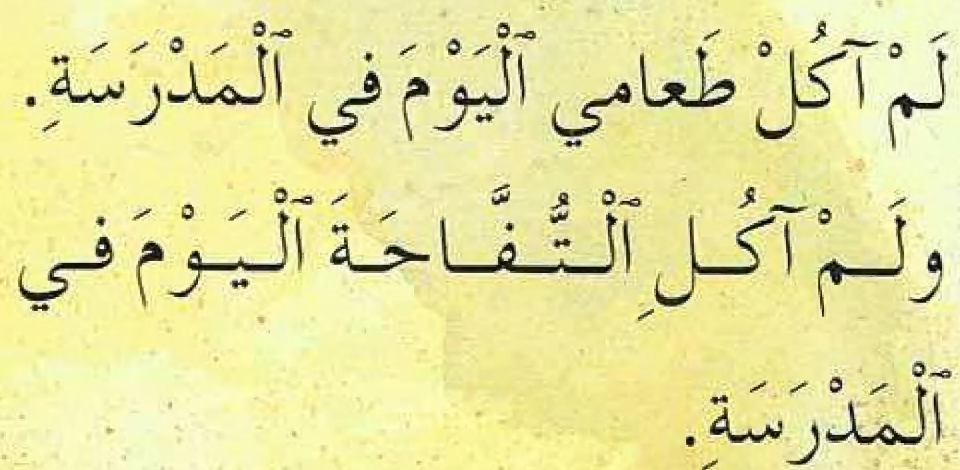 لَمْ آكُلْ طَعامي ٱلْيَوْمَ في ٱلْمَدْرَسَةِ.
ولَـمْ آكُـلِ ٱلْـتُّـفَّـاحَـةَ ٱلْـيَـوْمَ فـي
ٱلْمَدْرَسَةِ.